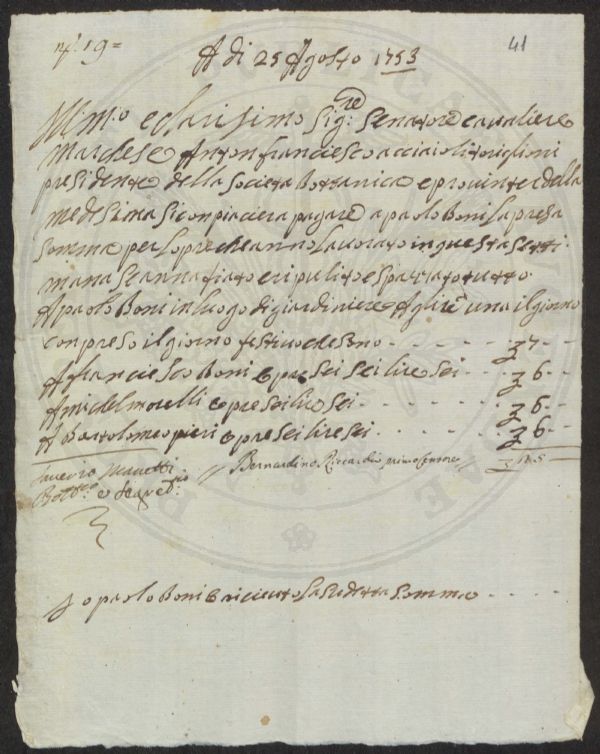 nº. 19=
41
A di 25 Agosto 1753
Illmº. e clarisimo Sigre: Senatore cavaliere
Marchese Antonfranciesco acciaioli toriglioni
presidente della Societa Bottanica e provinter della
medesima Si conpiaciera pagare a paolo Boni La presa
Somma per Lopre che anno Lavorato in questa Setti
mana Stannafiato e ripulito e Spazzato tutto
A paolo Boni in luogo di giardiniere A lire una il giorno
conpreso il giorno festivo che Sono - - - - - - - £ 7 - -
A franciesco Boni opre Sei Sei lire Sei - - - - £ 6 - -
A miclel morelli opre Sei lire Sei - - - - - £ 6 - -
A Bartolomeo pieri opre Sei lire Sei - - - - £ 6 - -
Saverio Manetti // Bernardino Riccardi primo Censore //
Bottco. e Segredrio
Io paolo Boni o riceuto La Sudetta Somma - - - -